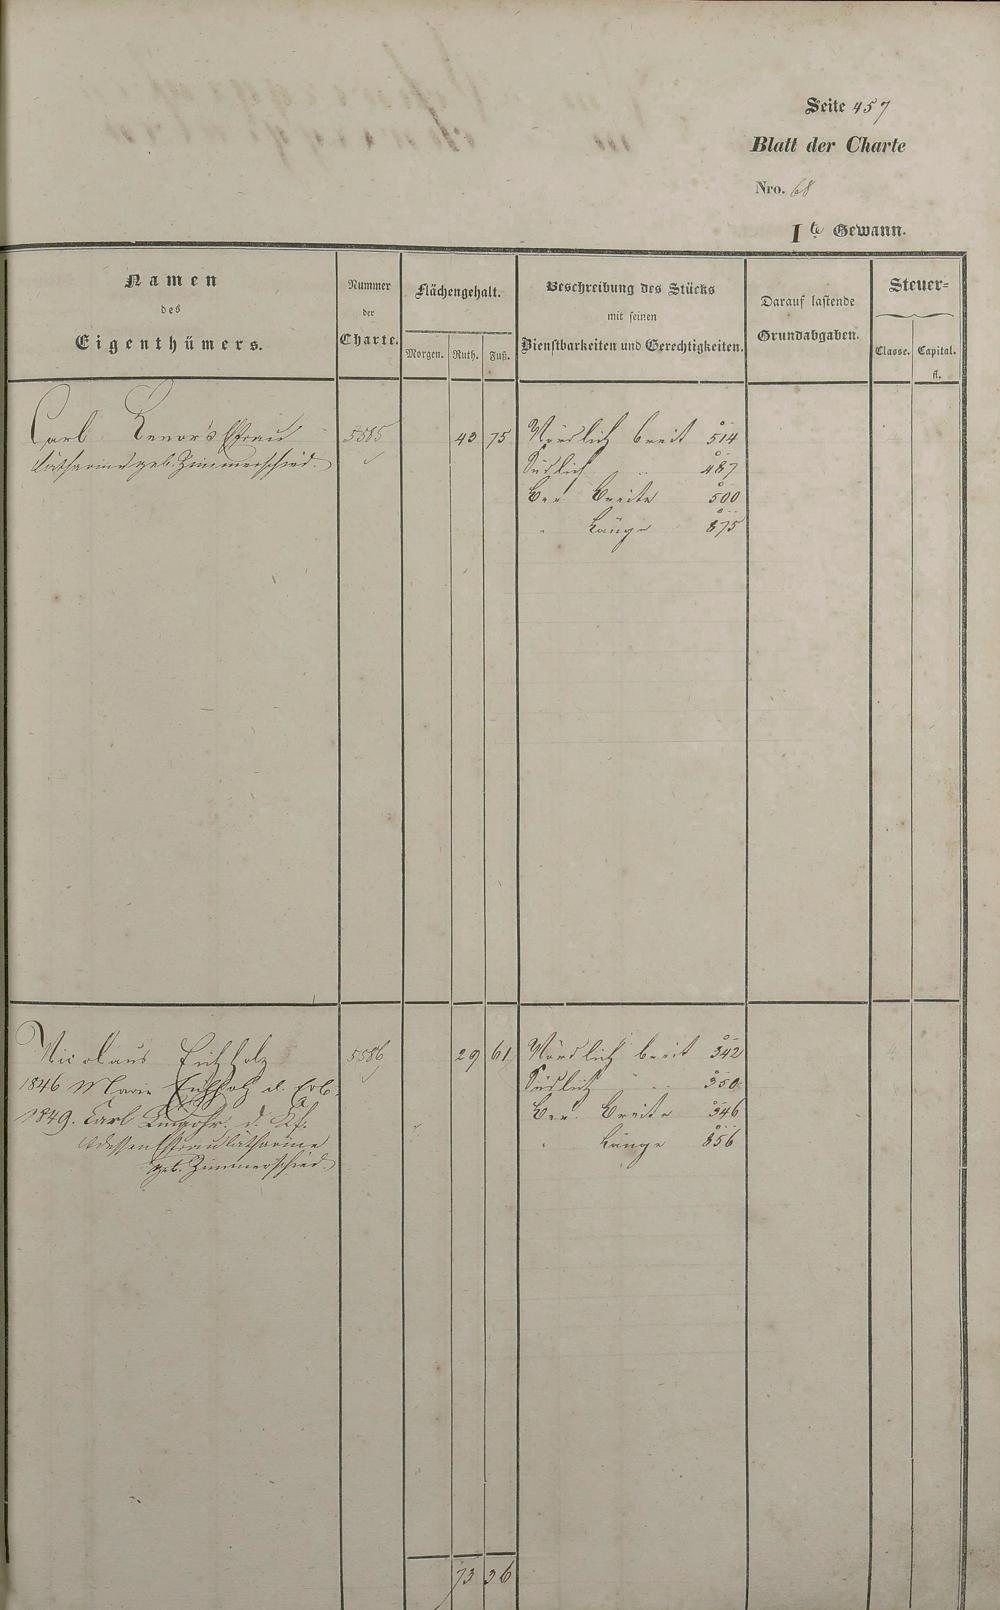 Seite 457
Blatt der Charte
Nro. 68
Ite Gewann.
Namen
des
Eigenthümers.
Nummer
der
Charte.
Flächengehalt.
Morgen. Ruth. Fuß.
Beschreibung des Stücks
mit seinen
Dienstbarkeiten und Gerechtigkeiten.
Darauf lastende
Grundabgaben.
Steuer=
Classe. Capital.
fl.
Carl Efrau 5585 43 75 Nördlich breit 514
Catharine geb. Zimmerschied. Südlich " 487
Ber. Breite 500
" Länge 875
Nicolaus Eichholz 5586 29 61 Nördlich breit 342
1846 Marie Eichholz d. Erb. Südlich " " 350
1849. Carl d. Kf. Ber. Breite 346
dessen Efrau Catharine " Länge 856
geb. Zimmerschied.
73 36